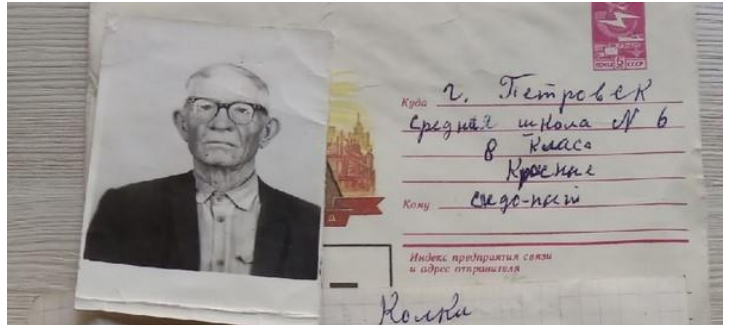 Куда г. Петровск
средняя школа N 6
8 класс
Красные
Кому следо-пыт
Индекс предприятия связи
и адрес отправителя